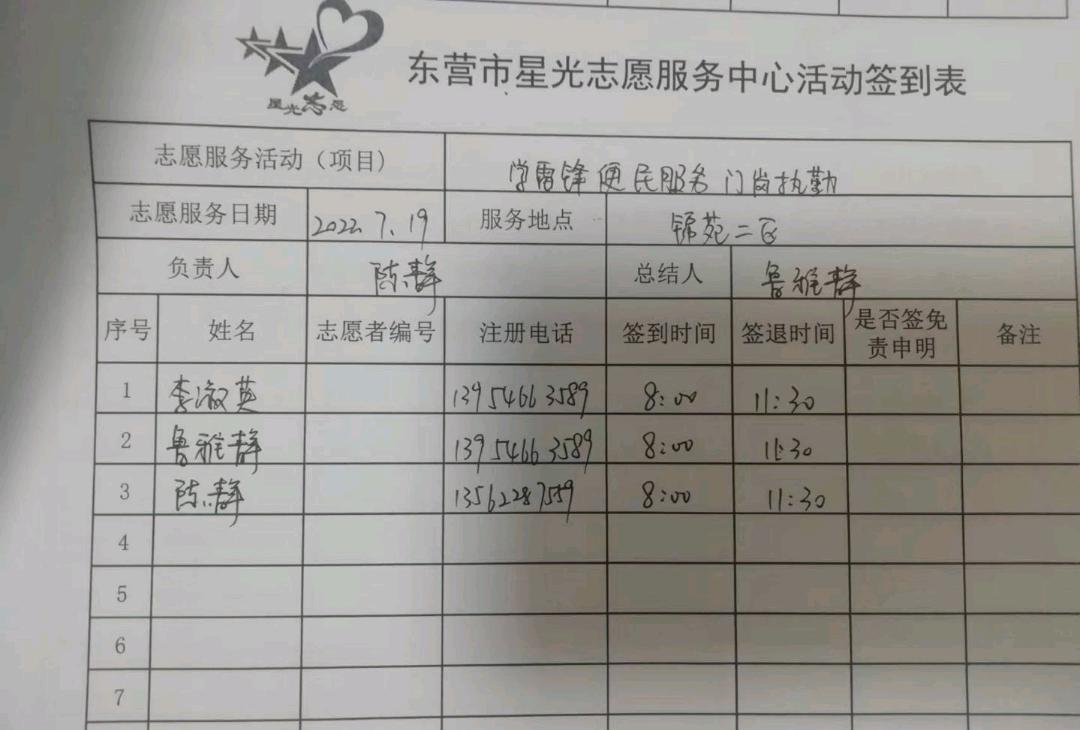 星光志愿
东营市星光志愿服务中心活动签到表
志愿服务活动（项目） 学雷锋 便民服务 门岗执勤
志愿服务日期 2022.7.19 服务地点 锦苑二区
负责人 陈静 总结人 鲁雅静
序号 姓名 志愿者编号 注册电话 签到时间 签退时间 是否签免责申明 备注
1 李淑英 13954663589 8:00 11:30
2 鲁雅静 13954663589 8:00 11:30
3 陈静 13562287559 8:00 11:30
4
5
6
7